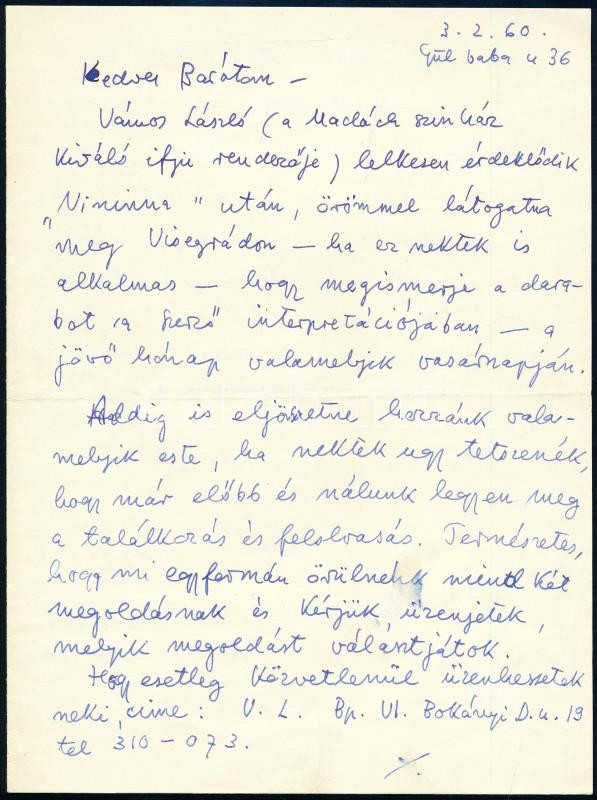 3. 2. 60.
Gül baba u 36
Kedves Barátom –
Vámos László (a Madách szinház
kiváló ifju rendezője) lelkesen érdeklődik
"Vininna" után, örömmel látogatna
meg Visegrádon – ha ez nektek is
alkalmas – hogy megismerje a dara-
bot a szerző interpretációjában – a
jövő hónap valamelyik vasárnapján.
Addig is eljöhetne hozzánk vala-
melyik este, ha nektek ugy tetszenék,
hogy már előbb és nálunk legyen meg
a találkozás és felolvasás. Természetes,
hogy mi egyformán örülnénk mind két
megoldásnak és kérjük, üzenjétek,
melyik megoldást választjátok.
Hogy esetleg közvetlenül üzenhessetek
neki, cime: V. L. Bp. VI. Bokányi D. u. 19
tel 310-073.